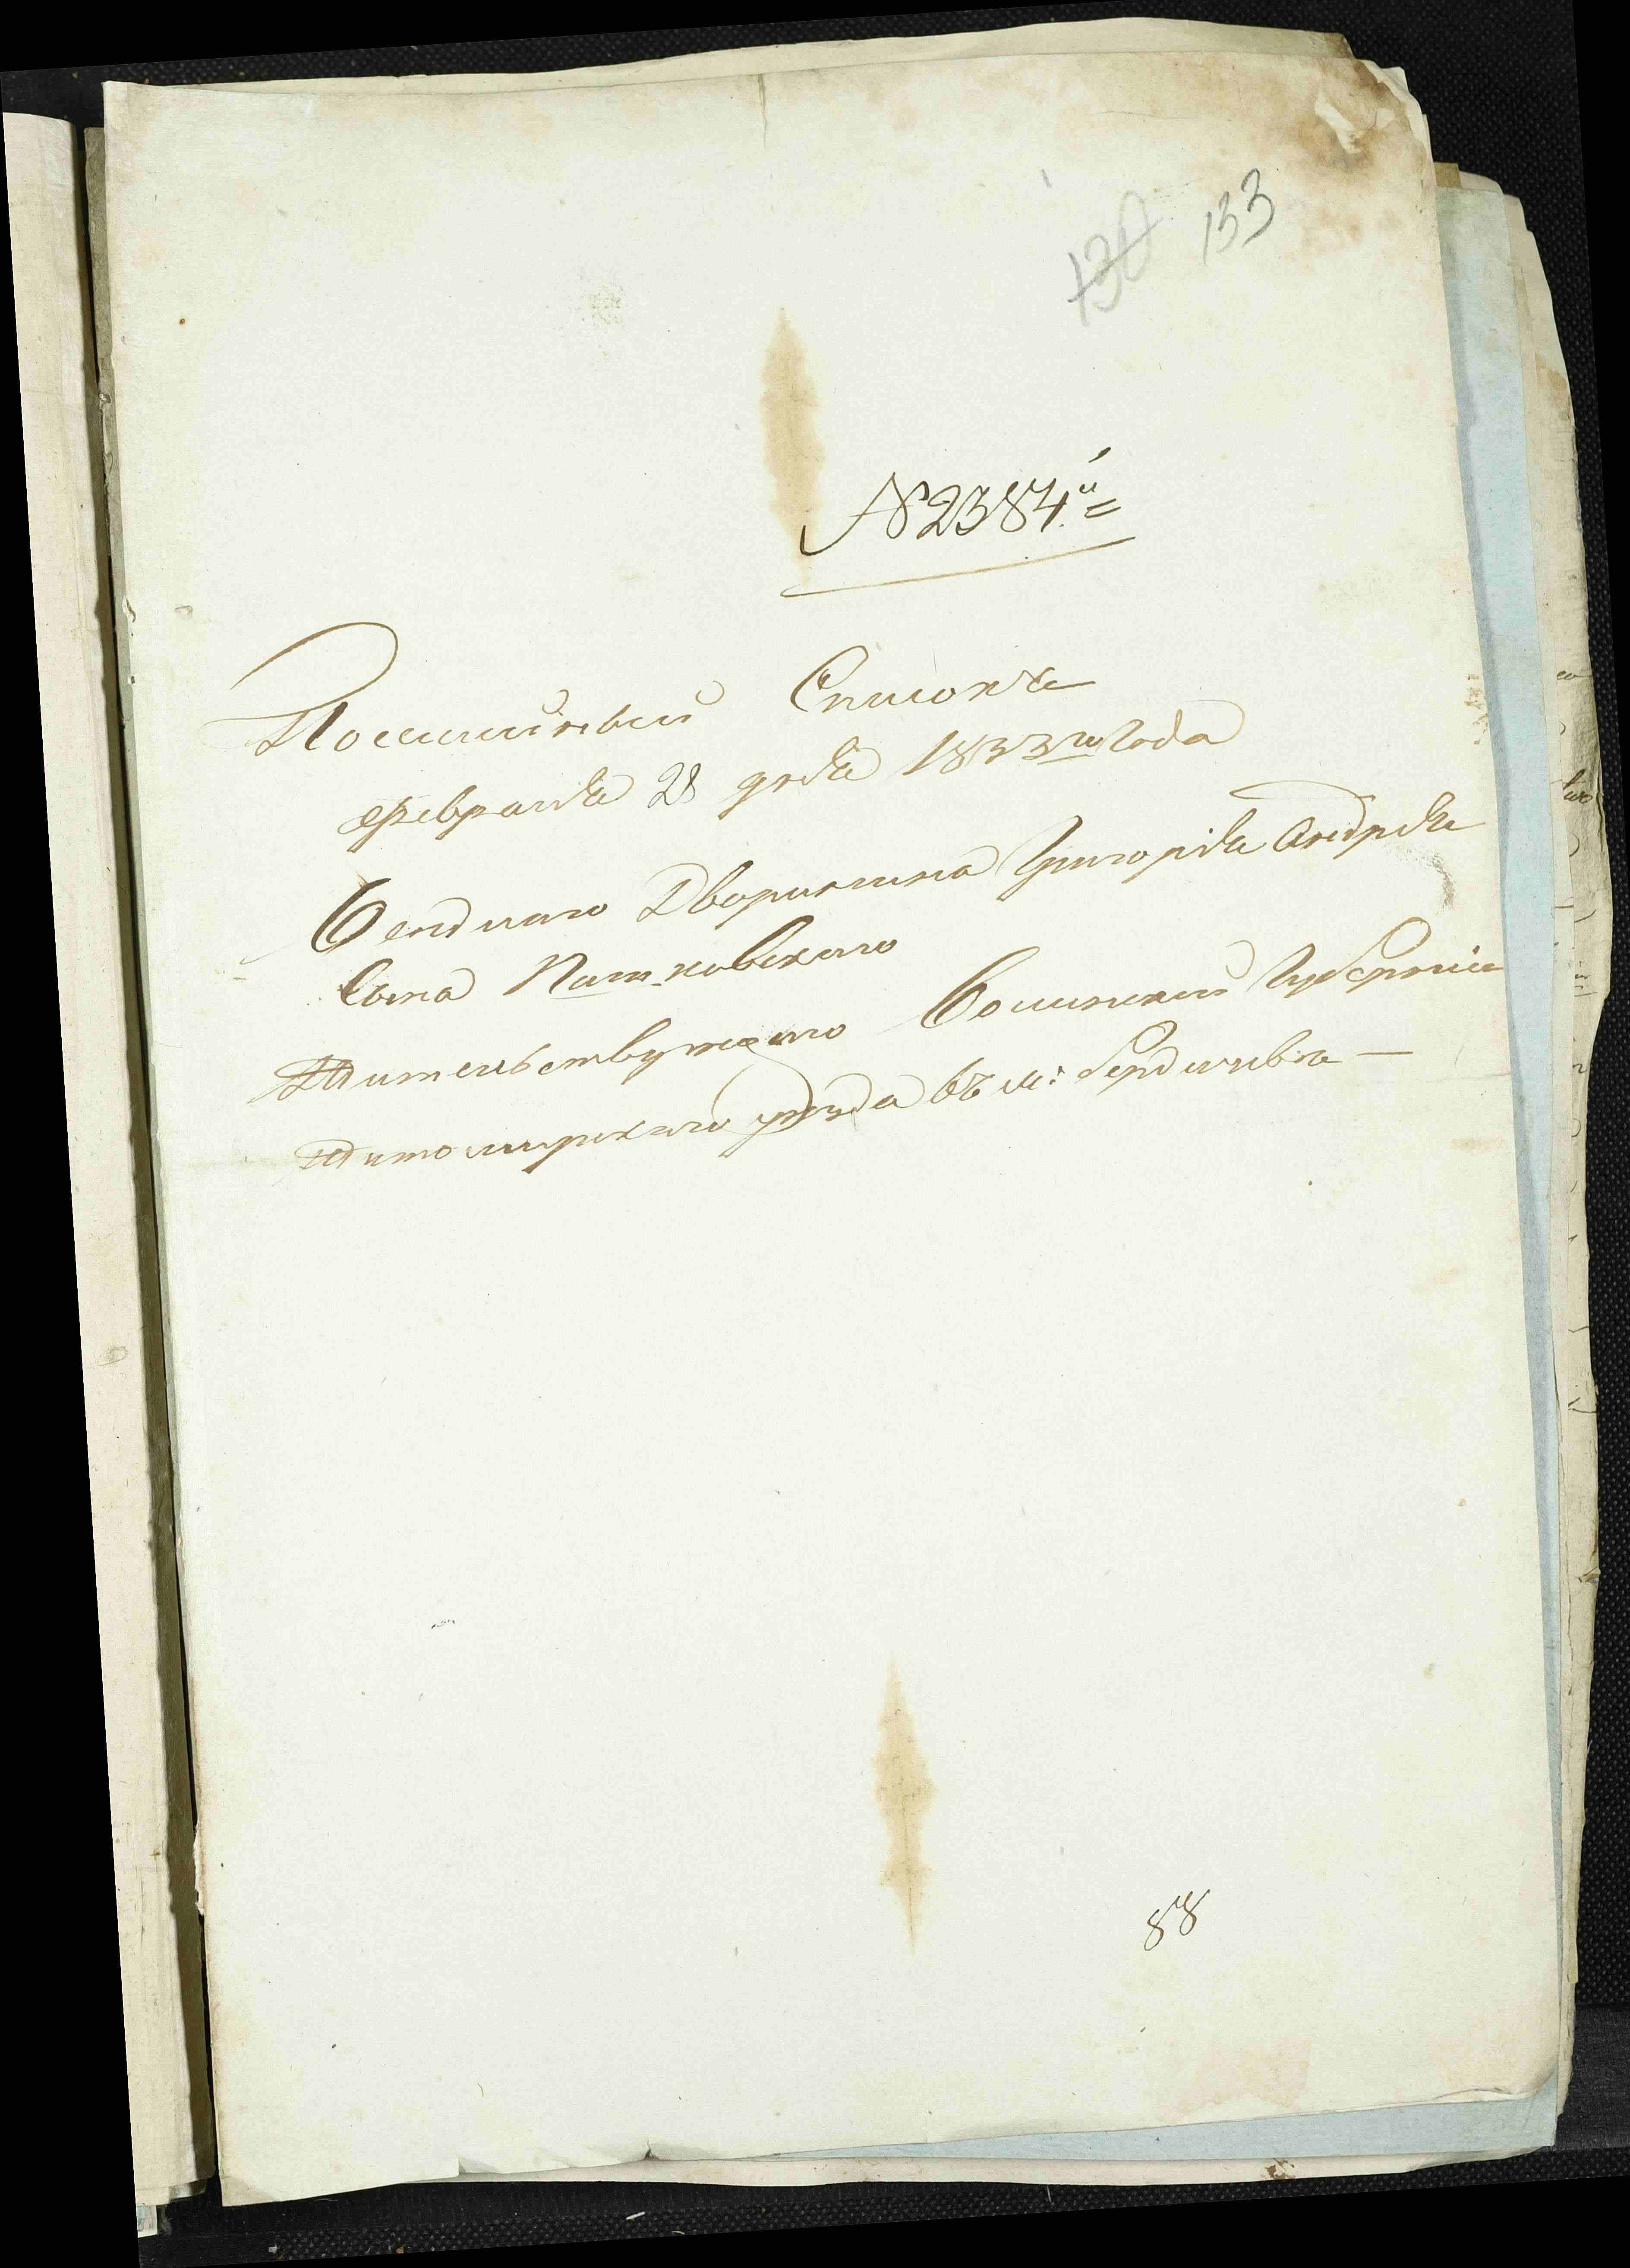 130 133
№ 2384.й =
Посемейный Списокъ
февраля 28 дня 1833го Года
Дворянина Григорія Андрея
Сына Пашковскаго
Жительствующаго Волинской Губерніи
Житомирскаго уезда въ м: Бердичевѣ —
88